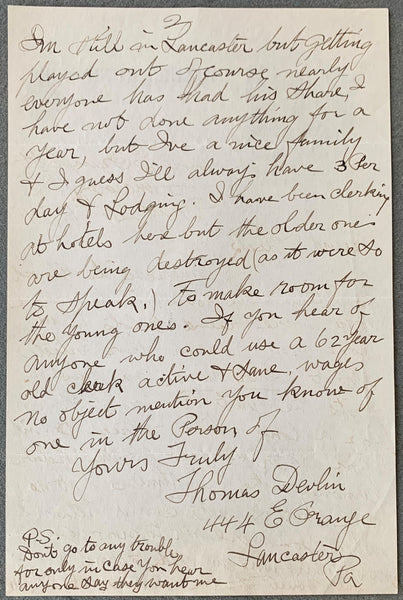 2
I'm still in Lancaster but getting
played out of course nearly
everyone has had his share, I
have not done anything for a
year, but I've a nice family
& I guess I'll always have 3 Per
day & Lodging. I have been clerking
at hotels here but the older ones
are being destroyed (as it were so
to speak.) to make room for
the young ones. If you hear of
anyone who could use a 62 year
old clerk active & sane, wages
no object mention you know of
one in the Person of
Yours Truly
Thomas Devlin
444 E Orange
Lancaster
Pa
P.S.
Don't go to any trouble
for only in case you hear
anyone say they want me